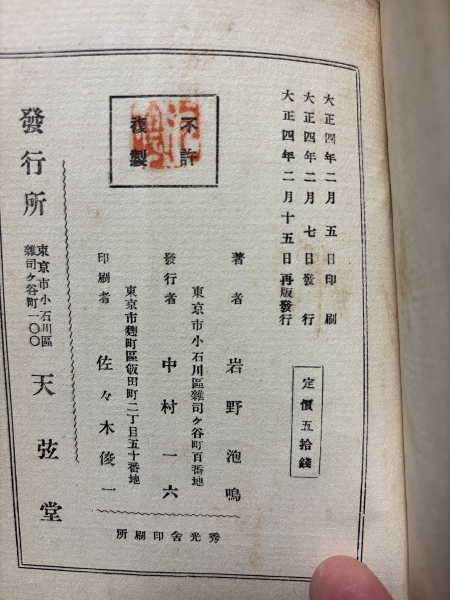 大正四年二月五日印刷
大正四年二月七日發行
大正四年二月十五日再版發行
定價五拾錢
不許
複製
著者 岩野泡鳴
東京市小石川區雜司ヶ谷町百番地
發行者 中村一六
東京市麴町區飯田町二丁目五十番地
印刷者 佐々木俊一
秀光舍印刷所
發行所
東京市小石川區
雜司ヶ谷町一〇〇
天弦堂